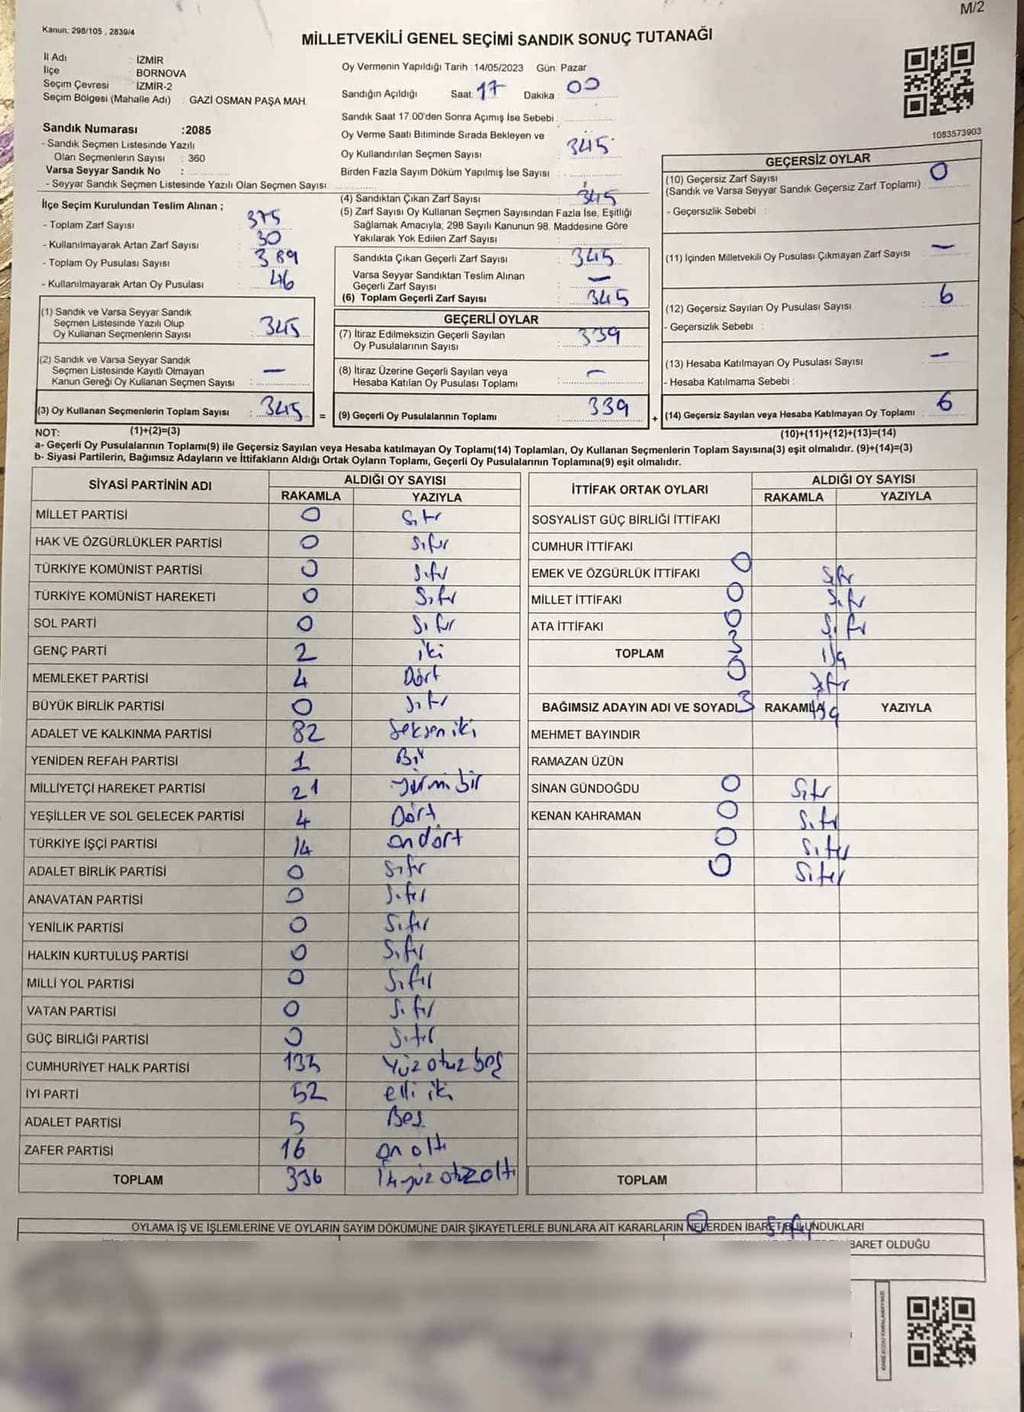 M/2
Kanun: 298/105 , 2839/4
MİLLETVEKİLİ GENEL SEÇİMİ SANDIK SONUÇ TUTANAĞI
İl Adı : İZMİR
İlçe : BORNOVA
Seçim Çevresi : İZMİR-2
Seçim Bölgesi (Mahalle Adı) : GAZİ OSMAN PAŞA MAH.
Sandık Numarası :2085
- Sandık Seçmen Listesinde Yazılı
Olan Seçmenlerin Sayısı : 360
Varsa Seyyar Sandık No :
- Seyyar Sandık Seçmen Listesinde Yazılı Olan Seçmen Sayısı
İlçe Seçim Kurulundan Teslim Alınan ;
- Toplam Zarf Sayısı : 375
- Kullanılmayarak Artan Zarf Sayısı : 30
- Toplam Oy Pusulası Sayısı : 389
- Kullanılmayarak Artan Oy Pusulası : 46
(1) Sandık ve Varsa Seyyar Sandık
Seçmen Listesinde Yazılı Olup
Oy Kullanan Seçmenlerin Sayısı : 345
(2) Sandık ve Varsa Seyyar Sandık
Seçmen Listesinde Kayıtlı Olmayan
Kanun Gereği Oy Kullanan Seçmen Sayısı : —
(3) Oy Kullanan Seçmenlerin Toplam Sayısı : 345 =
Oy Vermenin Yapıldığı Tarih :14/05/2023 Gün: Pazar
Sandığın Açıldığı Saat: 17 Dakika : 00
Sandık Saat 17.00'den Sonra Açımış İse Sebebi :
Oy Verme Saati Bitiminde Sırada Bekleyen ve
Oy Kullandırılan Seçmen Sayısı : 345
Birden Fazla Sayım Döküm Yapılmış İse Sayısı :
(4) Sandıktan Çıkan Zarf Sayısı : 345
(5) Zarf Sayısı Oy Kullanan Seçmen Sayısından Fazla İse, Eşitliği
Sağlamak Amacıyla; 298 Sayılı Kanunun 98. Maddesine Göre
Yakılarak Yok Edilen Zarf Sayısı :
Sandıkta Çıkan Geçerli Zarf Sayısı : 345
Varsa Seyyar Sandıktan Teslim Alınan
Geçerli Zarf Sayısı : —
(6) Toplam Geçerli Zarf Sayısı : 345
GEÇERLİ OYLAR
(7) İtiraz Edilmeksizin Geçerli Sayılan
Oy Pusulalarının Sayısı : 339
(8) İtiraz Üzerine Geçerli Sayılan veya
Hesaba Katılan Oy Pusulası Toplamı : —
(9) Geçerli Oy Pusulalarının Toplamı : 339 +
1083573903
GEÇERSİZ OYLAR
(10) Geçersiz Zarf Sayısı : 0
(Sandık ve Varsa Seyyar Sandık Geçersiz Zarf Toplamı)
- Geçersizlik Sebebi :
(11) İçinden Milletvekili Oy Pusulası Çıkmayan Zarf Sayısı : —
(12) Geçersiz Sayılan Oy Pusulası Sayısı : 6
- Geçersizlik Sebebi :
(13) Hesaba Katılmayan Oy Pusulası Sayısı : —
- Hesaba Katılmama Sebebi :
(14) Geçersiz Sayılan veya Hesaba Katılmayan Oy Toplamı : 6
NOT: (1)+(2)=(3) (10)+(11)+(12)+(13)=(14)
a- Geçerli Oy Pusulalarının Toplamı(9) ile Geçersiz Sayılan veya Hesaba katılmayan Oy Toplamı(14) Toplamları, Oy Kullanan Seçmenlerin Toplam Sayısına(3) eşit olmalıdır. (9)+(14)=(3)
b- Siyasi Partilerin, Bağımsız Adayların ve İttifakların Aldığı Ortak Oyların Toplamı, Geçerli Oy Pusulalarının Toplamına(9) eşit olmalıdır.
SİYASİ PARTİNİN ADI ALDIĞI OY SAYISI
RAKAMLA YAZIYLA
MİLLET PARTİSİ 0 Sıfır
HAK VE ÖZGÜRLÜKLER PARTİSİ 0 Sıfır
TÜRKİYE KOMÜNİST PARTİSİ 0 Sıfır
TÜRKİYE KOMÜNİST HAREKETİ 0 Sıfır
SOL PARTİ 0 Sıfır
GENÇ PARTİ 2 iki
MEMLEKET PARTİSİ 4 Dört
BÜYÜK BİRLİK PARTİSİ 0 Sıfır
ADALET VE KALKINMA PARTİSİ 82 Seksen iki
YENİDEN REFAH PARTİSİ 1 Bir
MİLLİYETÇİ HAREKET PARTİSİ 21 yirmi bir
YEŞİLLER VE SOL GELECEK PARTİSİ 4 Dört
TÜRKİYE İŞÇİ PARTİSİ 14 on dört
ADALET BİRLİK PARTİSİ 0 Sıfır
ANAVATAN PARTİSİ 0 Sıfır
YENİLİK PARTİSİ 0 Sıfır
HALKIN KURTULUŞ PARTİSİ 0 Sıfır
MİLLİ YOL PARTİSİ 0 Sıfır
VATAN PARTİSİ 0 Sıfır
GÜÇ BİRLİĞİ PARTİSİ 0 Sıfır
CUMHURİYET HALK PARTİSİ 135 Yüz otuz beş
İYİ PARTİ 52 elli iki
ADALET PARTİSİ 5 Beş
ZAFER PARTİSİ 16 on altı
TOPLAM 336 otuz altı
İTTİFAK ORTAK OYLARI ALDIĞI OY SAYISI
RAKAMLA YAZIYLA
SOSYALİST GÜÇ BİRLİĞİ İTTİFAKI
CUMHUR İTTİFAKI
EMEK VE ÖZGÜRLÜK İTTİFAKI 0 Sıfır
MİLLET İTTİFAKI 0 Sıfır
ATA İTTİFAKI 0 Sıfır
TOPLAM 3
0 Sıfır
BAĞIMSIZ ADAYIN ADI VE SOYADI 3 RAKAMLA YAZIYLA
MEHMET BAYINDIR
RAMAZAN ÜZÜN
SİNAN GÜNDOĞDU 0 Sıfır
KENAN KAHRAMAN 0 Sıfır
0 Sıfır
0 Sıfır
TOPLAM
OYLAMA İŞ VE İŞLEMLERİNE VE OYLARIN SAYIM DÖKÜMÜNE DAİR ŞİKAYETLERLE BUNLARA AİT KARARLARIN NELERDEN İBARET BULUNDUKLARI
İBARET OLDUĞU